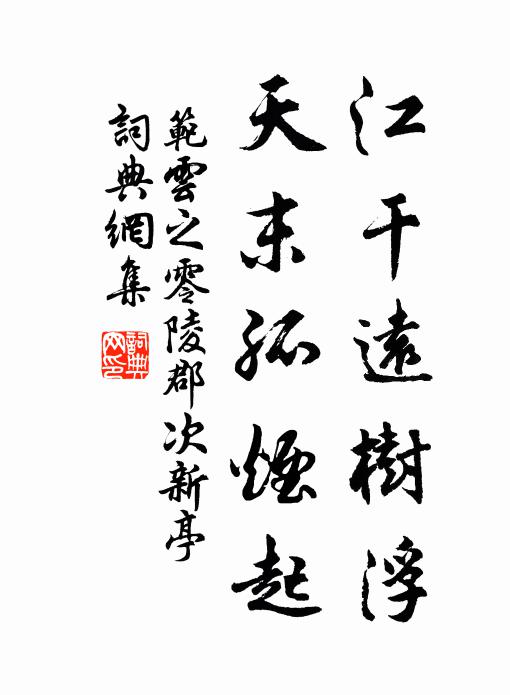 江干遠樹浮
天末孤煙起
範雲之零陵郡次新亭
詞典網集
詞典網印